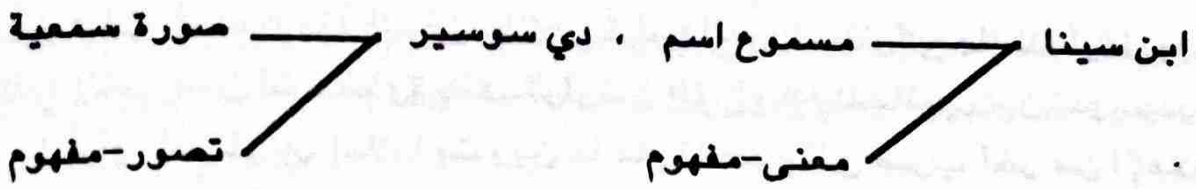 ابن سينا مسموع اسم . دي سوسير صورة سمعية
معنى-مفهوم تصور-مفهوم